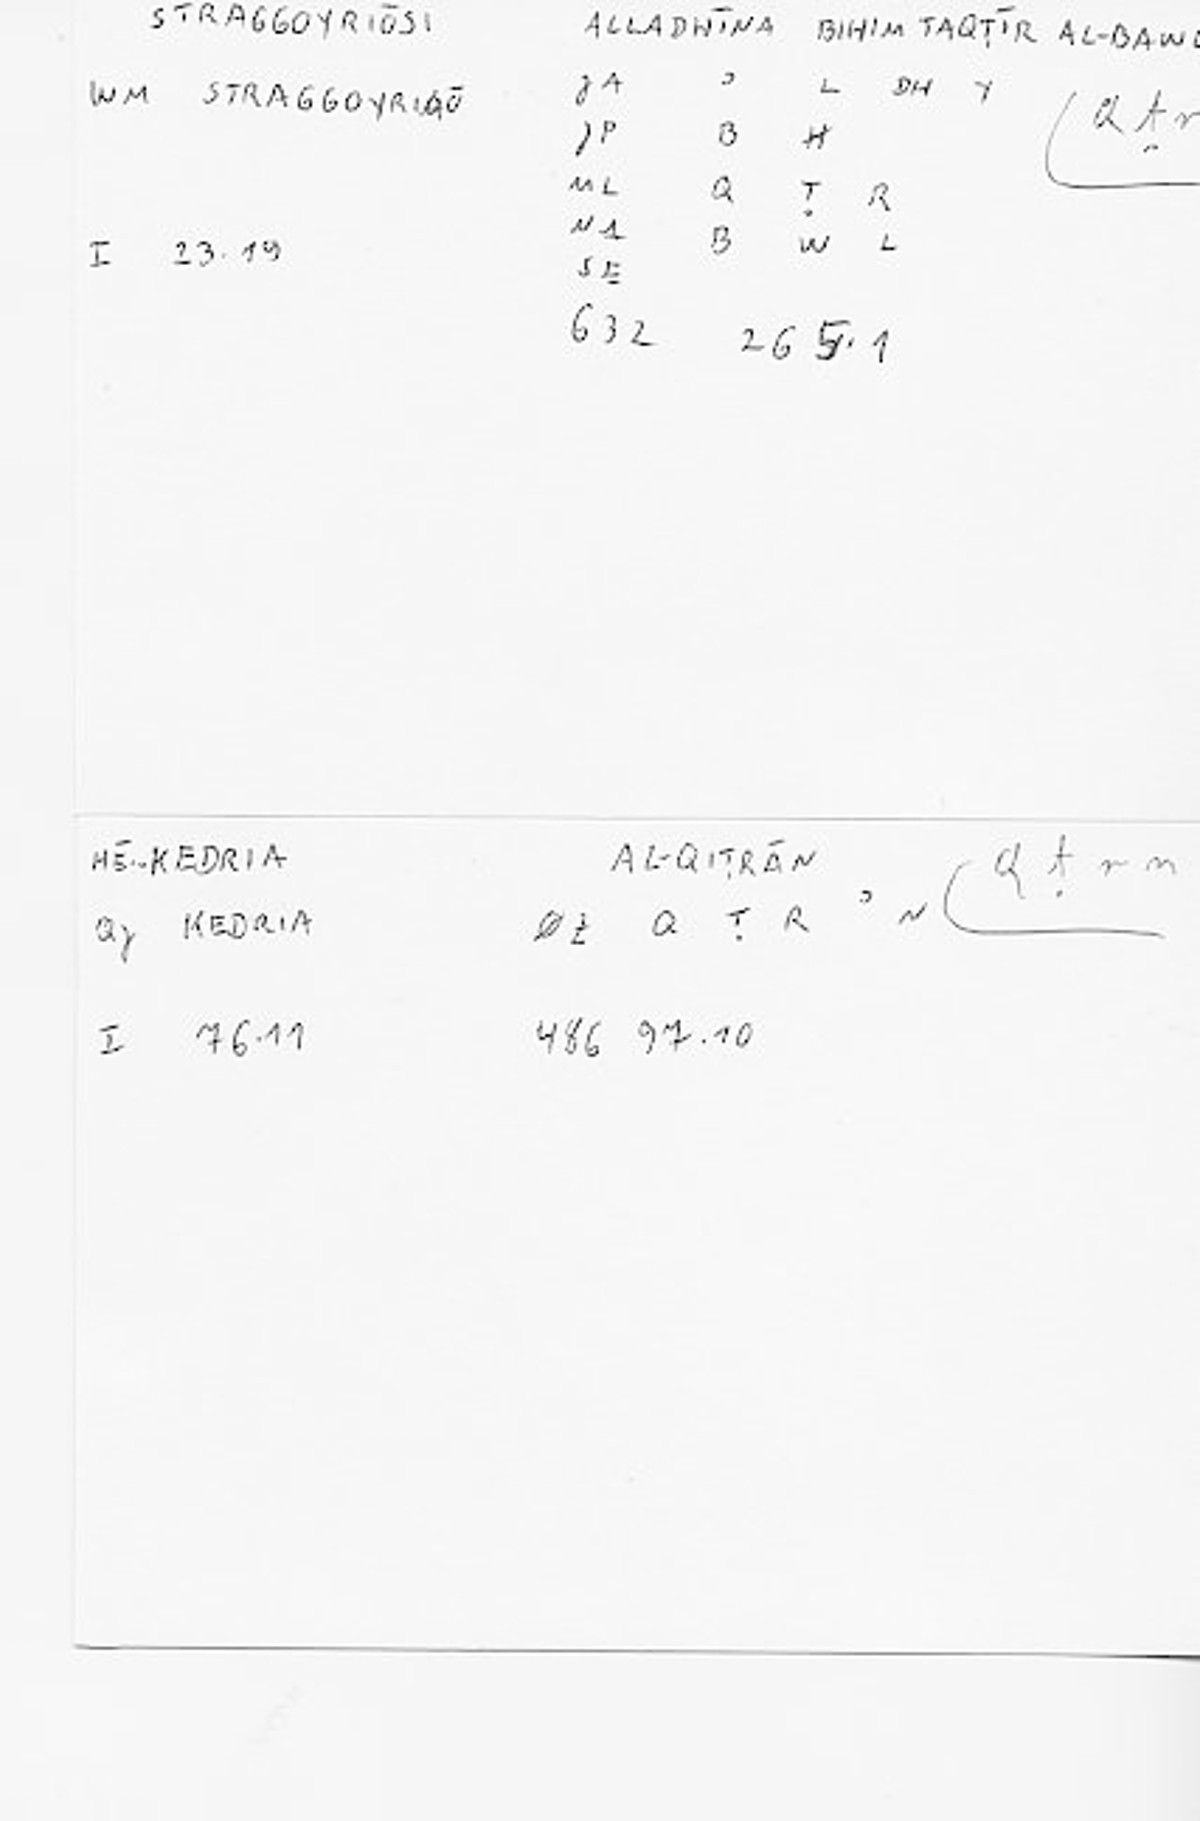 STRAGGOYRIŌSI ALLADHĪNA BIHIM TAQṬĪR AL-BAWL
WM STRAGGOYRIAŌ JA ʾ L DH Y Qṭr
JP B H
ML Q Ṭ R
I 23.19 N1 B W L
SE
632 265.1
HĒ-KEDRIA AL-QIṬRĀN Qṭrn
QJ KEDRIA ØZ Q Ṭ R ʾ N
I 76.11 486 97.10